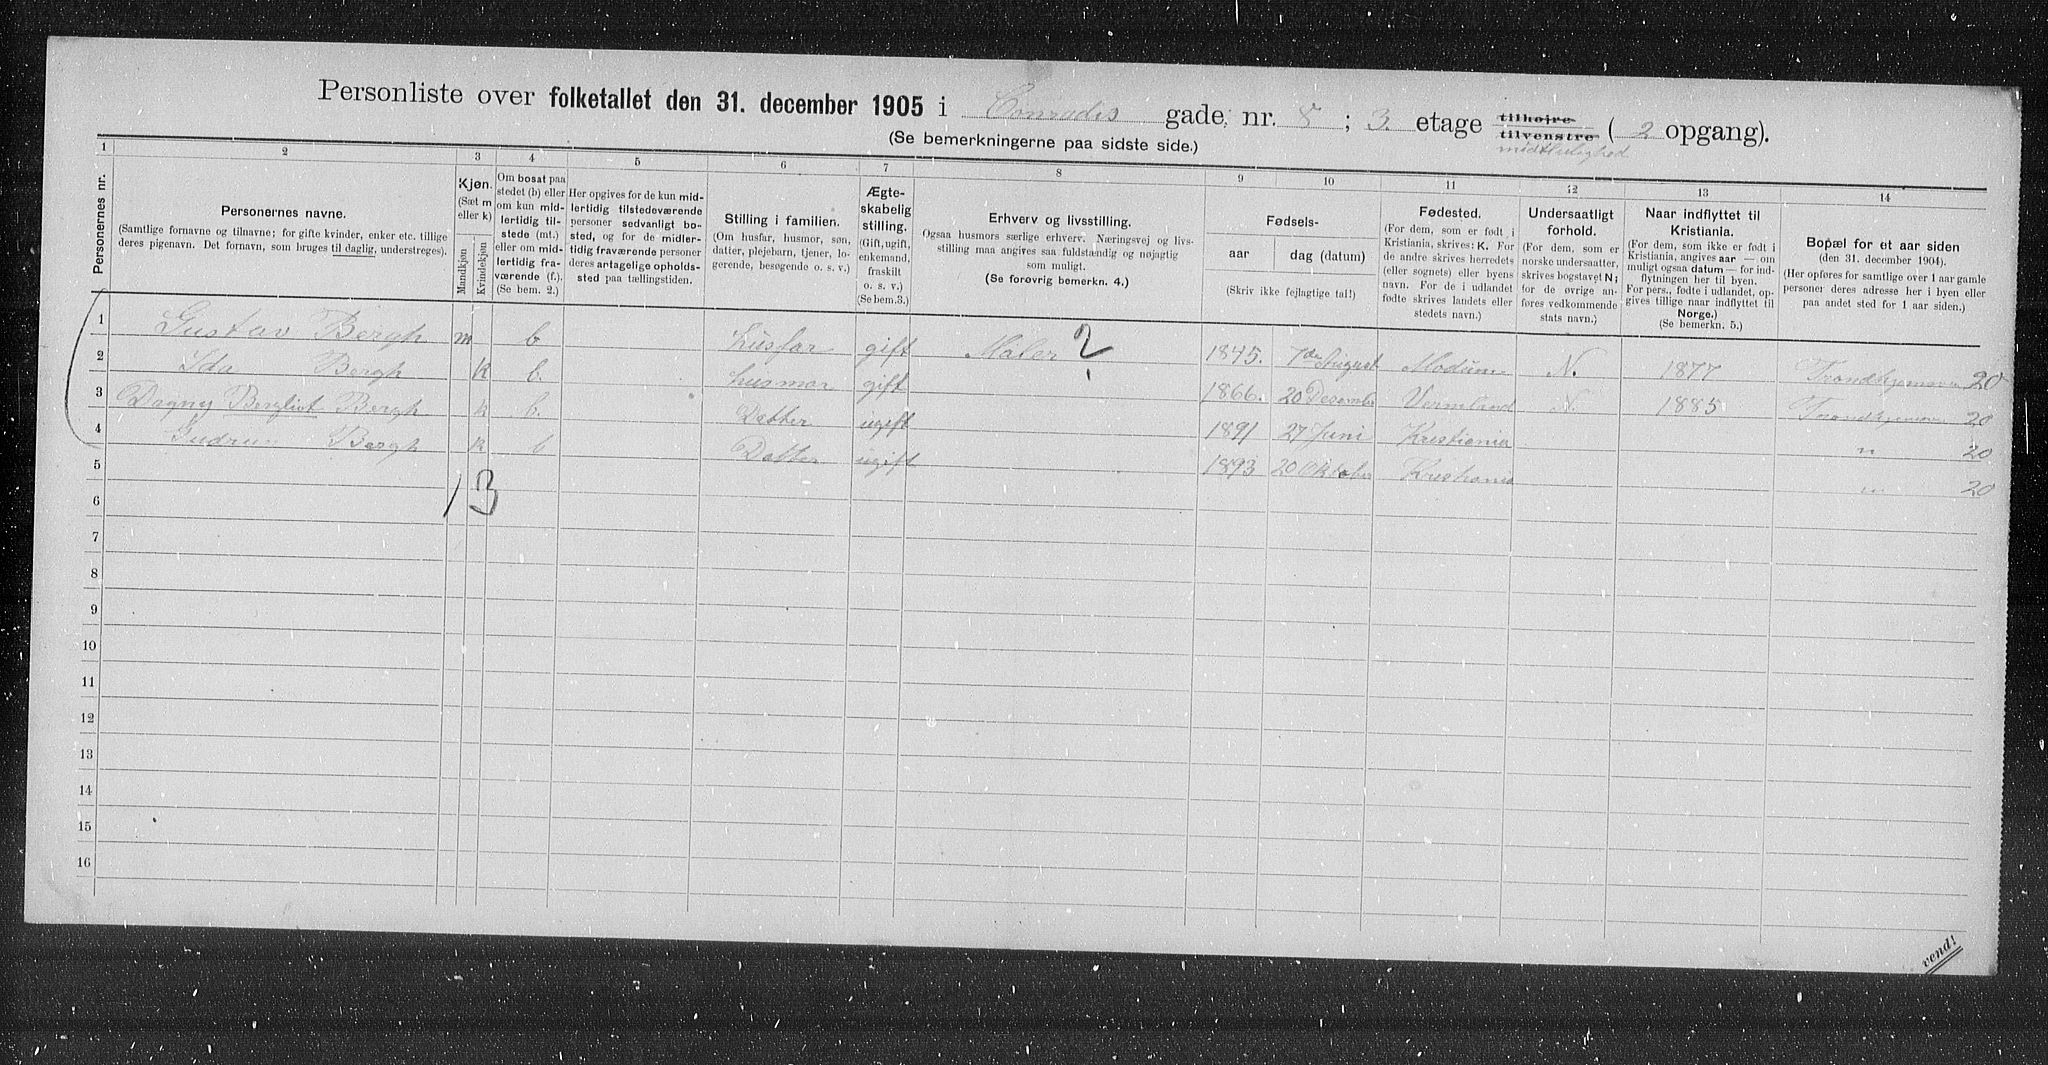 Personliste over folketallet den 31. december 1905 i Conradis gade nr. 8 ; 3. etage tilhøjre tilvenstre ( 2 opgang).
midtleilighed
(Se bemerkningerne paa sidste side.)
1 2 3 4 5 6 7 8 9 10 11 12 13 14
Personernes nr.
Personernes navne.
(Samtlige fornavne og tilnavne; for gifte kvinder, enker etc. tillige
deres pigenavn. Det fornavn, som bruges til daglig, understreges).
Kjøn.
(Sæt m
eller k)
Mandkjøn
Kvindekjøn
Om bosat paa
stedet (b) eller
om kun mid-
lertidig til-
stede (mt.)
eller om mid-
lertidig fra-
værende (f.).
(Se bem. 2.)
Her opgives for de kun mid-
lertidig tilstedeværende
personer sedvanligt bo-
sted, og for de midler-
tidig fraværende personer
deres antagelige opholds-
sted paa tællingstiden.
Stilling i familien.
(Om husfar, husmor, søn,
datter, plejebarn, tjener, lo-
gerende, besøgende o. s. v.)
Ægte-
skabelig
stilling.
(Gift, ugift,
enkemand,
fraskilt
o. s. v.)
(Se bem.3.)
Erhverv og livsstilling.
Ogsaa husmors særlige erhverv. Næringsvej og livs-
stilling maa angives saa fuldstændig og nøjagtig
som muligt.
(Se forøvrig bemerkn. 4.)
Fødsels-
aar
dag (datum)
(Skriv ikke fejlagtige tal!)
Fødested.
(For dem, som er født i
Kristiania, skrives: K. For
de andre skrives herredets
(eller sognets) eller byens
navn. For de i udlandet
fødte skrives landets eller
stedets navn.)
Undersaatligt
forhold.
(For dem, som er
norske undersaatter,
skrives bogstavet N;
for de øvrige an-
føres vedkommende
stats navn.)
Naar indflyttet til
Kristiania.
(For dem, som ikke er født i
Kristiania, angives aar — om
muligt ogsaa datum — for ind-
flytningen her til byen.
For pers., fødte i udlandet, op-
gives tillige naar indflyttet til
Norge.)
(Se bemerkn. 5.)
Bopæl for et aar siden
(den 31. december 1904).
(Her opføres for samtlige over 1 aar gamle
personer deres adresse her i byen eller
paa andet sted for 1 aar siden.)
1 Gustav Bergh m b husfar gift Maler ? 1845. 7de August Modum N. 1877 20
2 Ida Bergh k b. husmor gift 1866. 20 Desember Vermland N. 1885 20
3 Dagny Bergliot Bergh k b. Datter ugift 1891 27 Juni Kristiania " 20
4 Gudrun Bergh k b Datter ugift 1893 20 Oktober Kristiania " 20
5
1 3
6
7
8
9
10
11
12
13
14
15
16
vend!